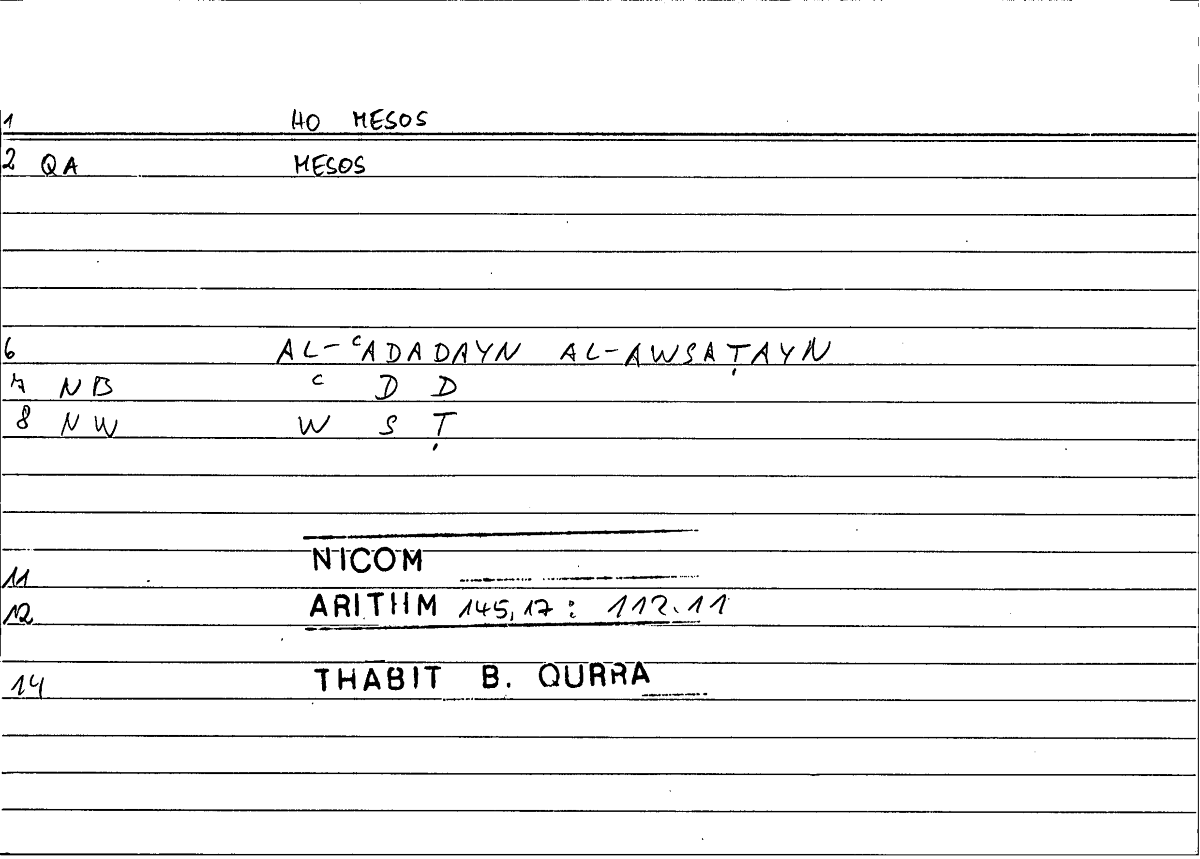 1 HO MESOS
2 QA MESOS
6 AL-ʿADADAYN AL-AWSAṬAYN
7 NB ʿ D D
8 NW W S Ṭ
11 NICOM
12 ARITHM 145,17 : 112.11
14 THABIT B. QURRA